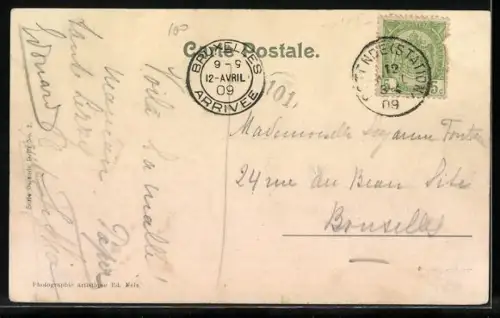 Carte Postale.
BRUXELLES
9-S
12-AVRIL
09
ARRIVÉE
OSTENDE (STATION)
12
09
101.
Voilà la malle!
Maman. Papa
tante
Edouard
Mademoiselle Suzanne
24 rue du Beau Site
Bruxelles
Photographie Artistique Ed. Nels